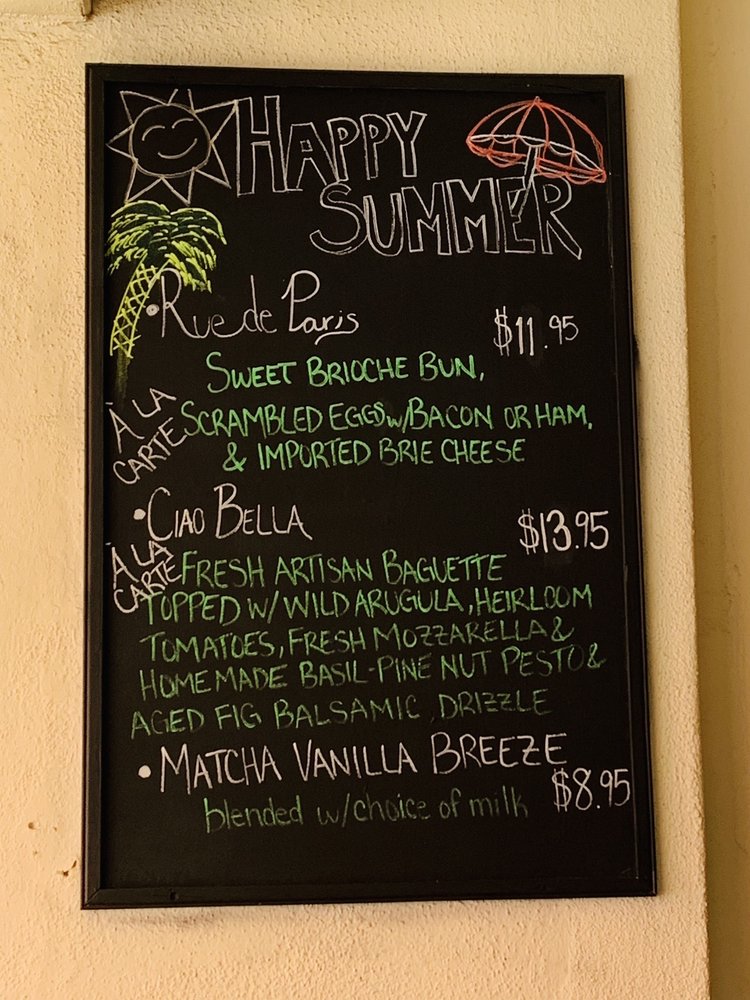 HAPPY
SUMMER
• Rue de Paris
$11.95
SWEET BRIOCHE BUN,
À LA
CARTE
SCRAMBLED EGGS w/BACON OR HAM,
& IMPORTED BRIE CHEESE
• CIAO BELLA
$13.95
À LA
CARTE
FRESH ARTISAN BAGUETTE
TOPPED W/ WILD ARUGULA, HEIRLOOM
TOMATOES, FRESH MOZZARELLA &
HOMEMADE BASIL-PINE NUT PESTO &
AGED FIG BALSAMIC, DRIZZLE
• MATCHA VANILLA BREEZE
$8.95
blended w/choice of milk